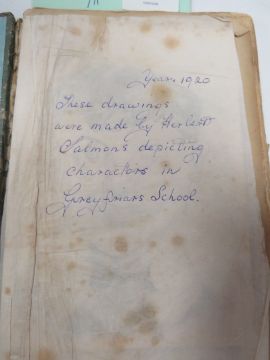 Year 1920
These drawings
were made by Herbert
Salmons depicting
characters in
Greyfriars School.